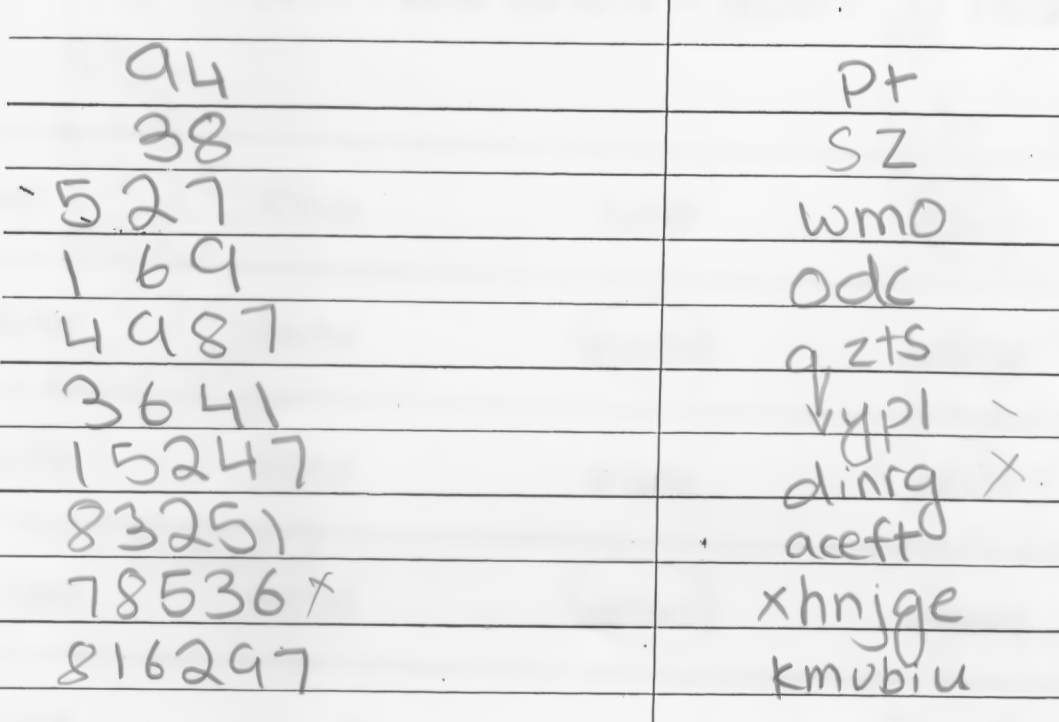 94 pt
38 sz
527 wmo
169 odc
4987 qzts
3641 vypl
15247 dinrg x
83251 aceft
78536 x xhnjge
816297 kmvbiu